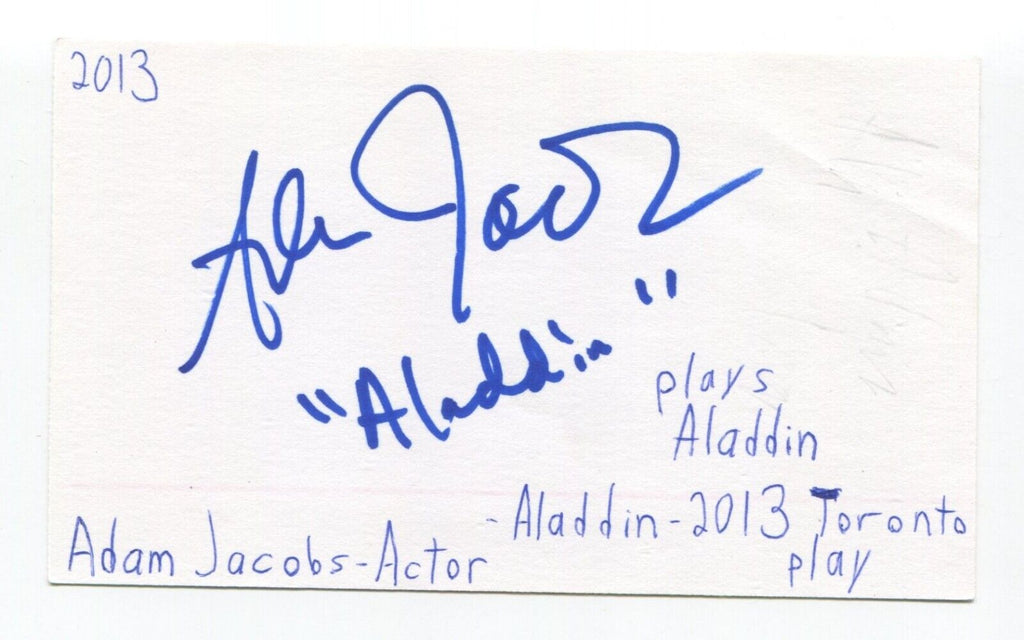 2013
Adam Jacobs
"Aladdin"
plays
Aladdin
- Aladdin - 2013 Toronto
play
Adam Jacobs - Actor